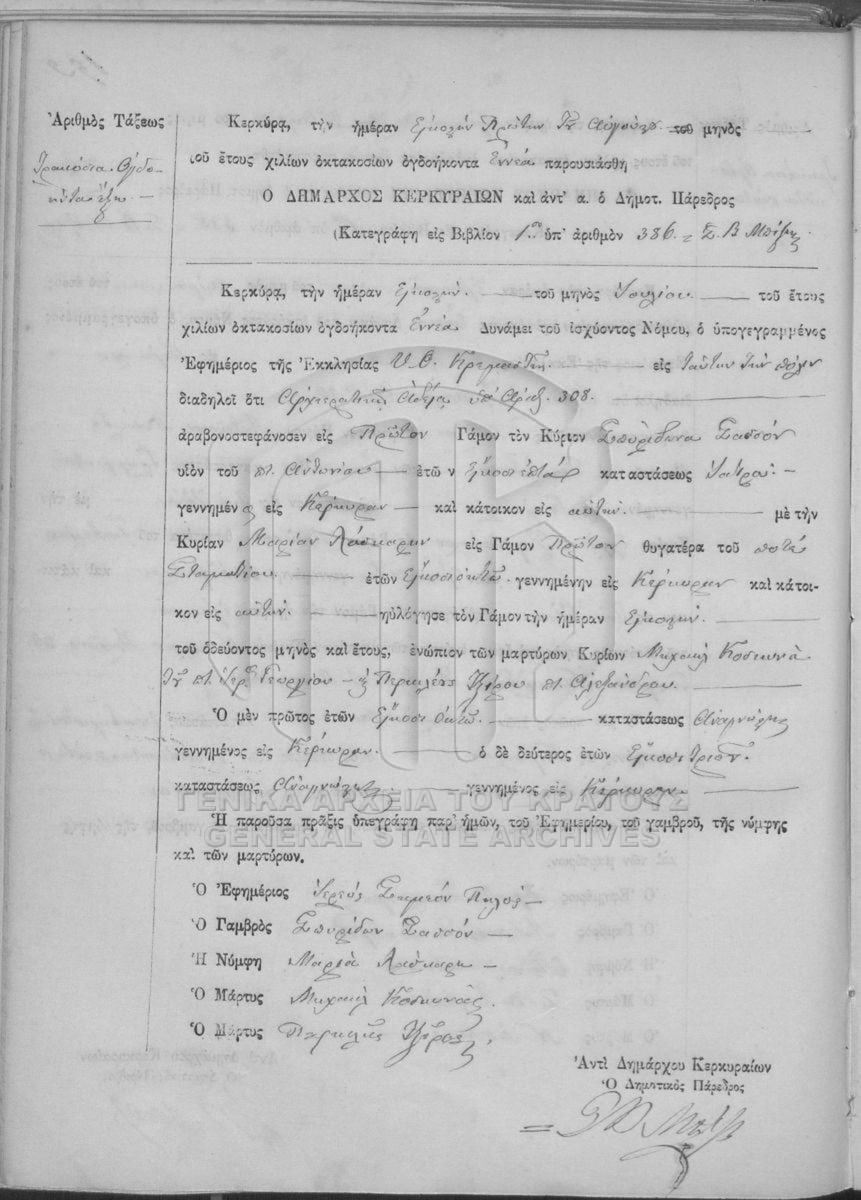 Ἀριθμὸς Τάξεως
Τριακόσια Ὀγδο-
ήκοντα ἕξη. —
Κερκύρᾳ, τὴν ἡμέραν Εἰκοστὴν Πρώτην Αὐγούστου τοῦ μηνὸς
τοῦ ἔτους χιλίων ὀκτακοσίων ὀγδοήκοντα Ἐννέα παρουσιάσθη
Ὁ ΔΗΜΑΡΧΟΣ ΚΕΡΚΥΡΑΙΩΝ καὶ ἀντ' α. ὁ Δημοτ. Πάρεδρος
(Κατεγράφη εἰς Βιβλίον 1ον ὑπ' ἀριθμὸν 386.
Κερκύρᾳ, τὴν ἡμέραν Εἰκοστὴν. — τοῦ μηνὸς Ἰουλίου — τοῦ ἔτους
χιλίων ὀκτακοσίων ὀγδοήκοντα Ἐννέα Δυνάμει τοῦ ἰσχύοντος Νόμου, ὁ ὑπογεγραμμένος
Ἐφημέριος τῆς Ἐκκλησίας Υ. Θ. Κρεμαστῆς. — εἰς ταύτην τὴν πόλιν
διαδηλοῖ ὅτι Ἀρχιερατικῇ Ἀδείᾳ ὑπ' Ἀριθ. 308. —
ἀραβονοστεφάνοσεν εἰς Πρῶτον Γάμον τὸν Κύριον Σπυρίδωνα Σασσὸν
υἱὸν τοῦ π. Ἀντωνίου — ἐτῶν Εἴκοσι ἑπτὰ καταστάσεως Ἰατροῦ. —
γεννημένον εἰς Κέρκυραν — καὶ κάτοικον εἰς αὐτήν. — μὲ τὴν
Κυρίαν Μαρίαν Λάσκαρη εἰς Γάμον Πρῶτον θυγατέρα τοῦ ποτὲ
Σταματίου. — ἐτῶν Εἴκοσι ὀκτὼ. γεννημένην εἰς Κέρκυραν καὶ κάτοι-
κον εἰς αὐτήν. — ηὐλόγησε τὸν Γάμον τὴν ἡμέραν Εἰκοστὴν. —
τοῦ ὁδεύοντος μηνὸς καὶ ἔτους, ἐνώπιον τῶν μαρτύρων Κυρίων Μιχαὴλ Κοσκινᾶ
τοῦ π. Ἱερ. Γεωργίου — Περικλέους π. Ἀλεξάνδρου. —
Ὁ μὲν πρῶτος ἐτῶν Εἴκοσι ὀκτὼ. — καταστάσεως Ἀναγνώστης
γεννημένος εἰς Κέρκυραν. — ὁ δὲ δεύτερος ἐτῶν Εἴκοσι τριῶν.
καταστάσεως Ἀναγνώστης — γεννημένος εἰς Κέρκυραν. —
ΓΕΝΙΚΑ ΑΡΧΕΙΑ ΤΟΥ ΚΡΑΤΟΥΣ
Ἡ παροῦσα πρᾶξις ὑπεγράφη παρ' ἡμῶν, τοῦ Ἐφημερίου, τοῦ γαμβροῦ, τῆς νύμφης
GENERAL STATE ARCHIVES
καὶ τῶν μαρτύρων.
Ὁ Ἐφημέριος Ἱερεὺς Συμεὸν —
Ὁ Γαμβρὸς Σπυρίδων Σασσὸν —
Ἡ Νύμφη Μαρία Λάσκαρη —
Ὁ Μάρτυς Μιχαὴλ Κοσκινᾶς.
Ὁ Μάρτυς Περικλῆς
Ἀντὶ Δημάρχου Κερκυραίων
Ὁ Δημοτικὸς Πάρεδρος